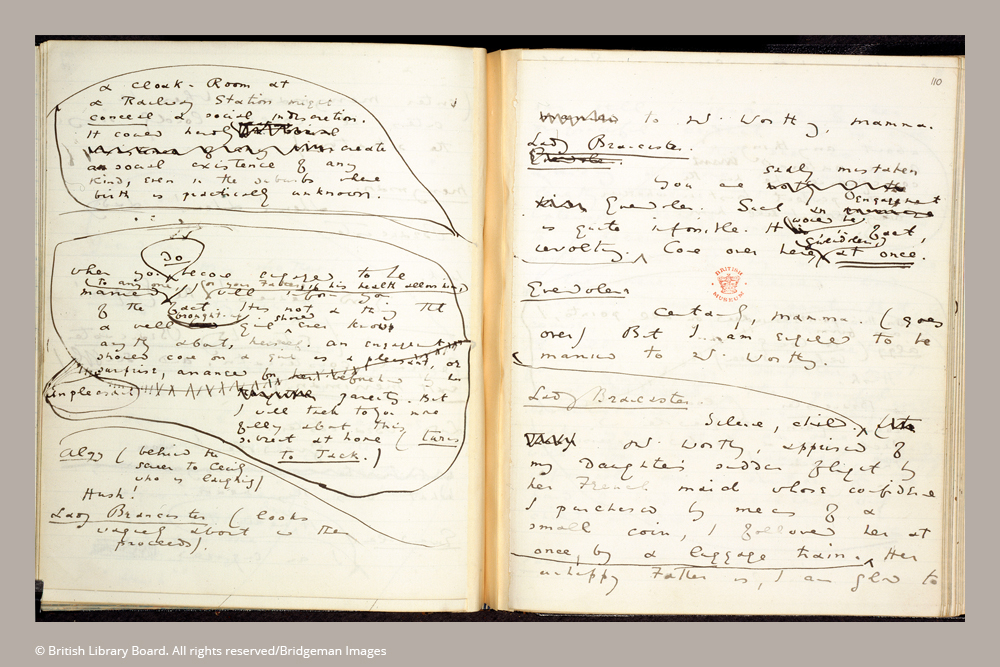 a cloak-Room at
a Railway Station might
conceal a social indiscretion.
It could hardly
create
social existence of any
kind, even in the suburbs where
birth is practically unknown.
Do
When you become engaged to be
(to any one, (or your Father if his health allows him)
married will inform you
of the fact. It is not a thing that
brought-up should
a well girl ever know
anything about, herself. An engagement
should come on a girl as a pleasant, or
surprise,
unpleasant
But
I will talk to you more
fully about this
subject at home (turns
to Jack.)
Algy (behind the
sofa to Cecily
who is laughing)
Hush!
Lady Brancaster (looks
vaguely about as she
proceeds).
110
to Mr. Worthing, mamma.
Lady Brancaster.
sadly mistaken
You are
Engagement
Gwendolen. Such an
would be
is quite impossible. It is, in fact,
(Gwendolen)
revolting. Come over here at once.
BRITISH
MUSEUM
Gwendolen
Certainly, mamma. (goes
over) But I am engaged to be
married to Mr. Worthing.
Lady Brancaster.
Silence, child.
Mr. Worthing, apprised of
my Daughter's sudden flight by
her French maid whose confidence
I purchased by means of a
small coin, I followed her at
once, by a luggage train. Her
unhappy Father is, I am glad to
© British Library Board. All rights reserved/Bridgeman Images